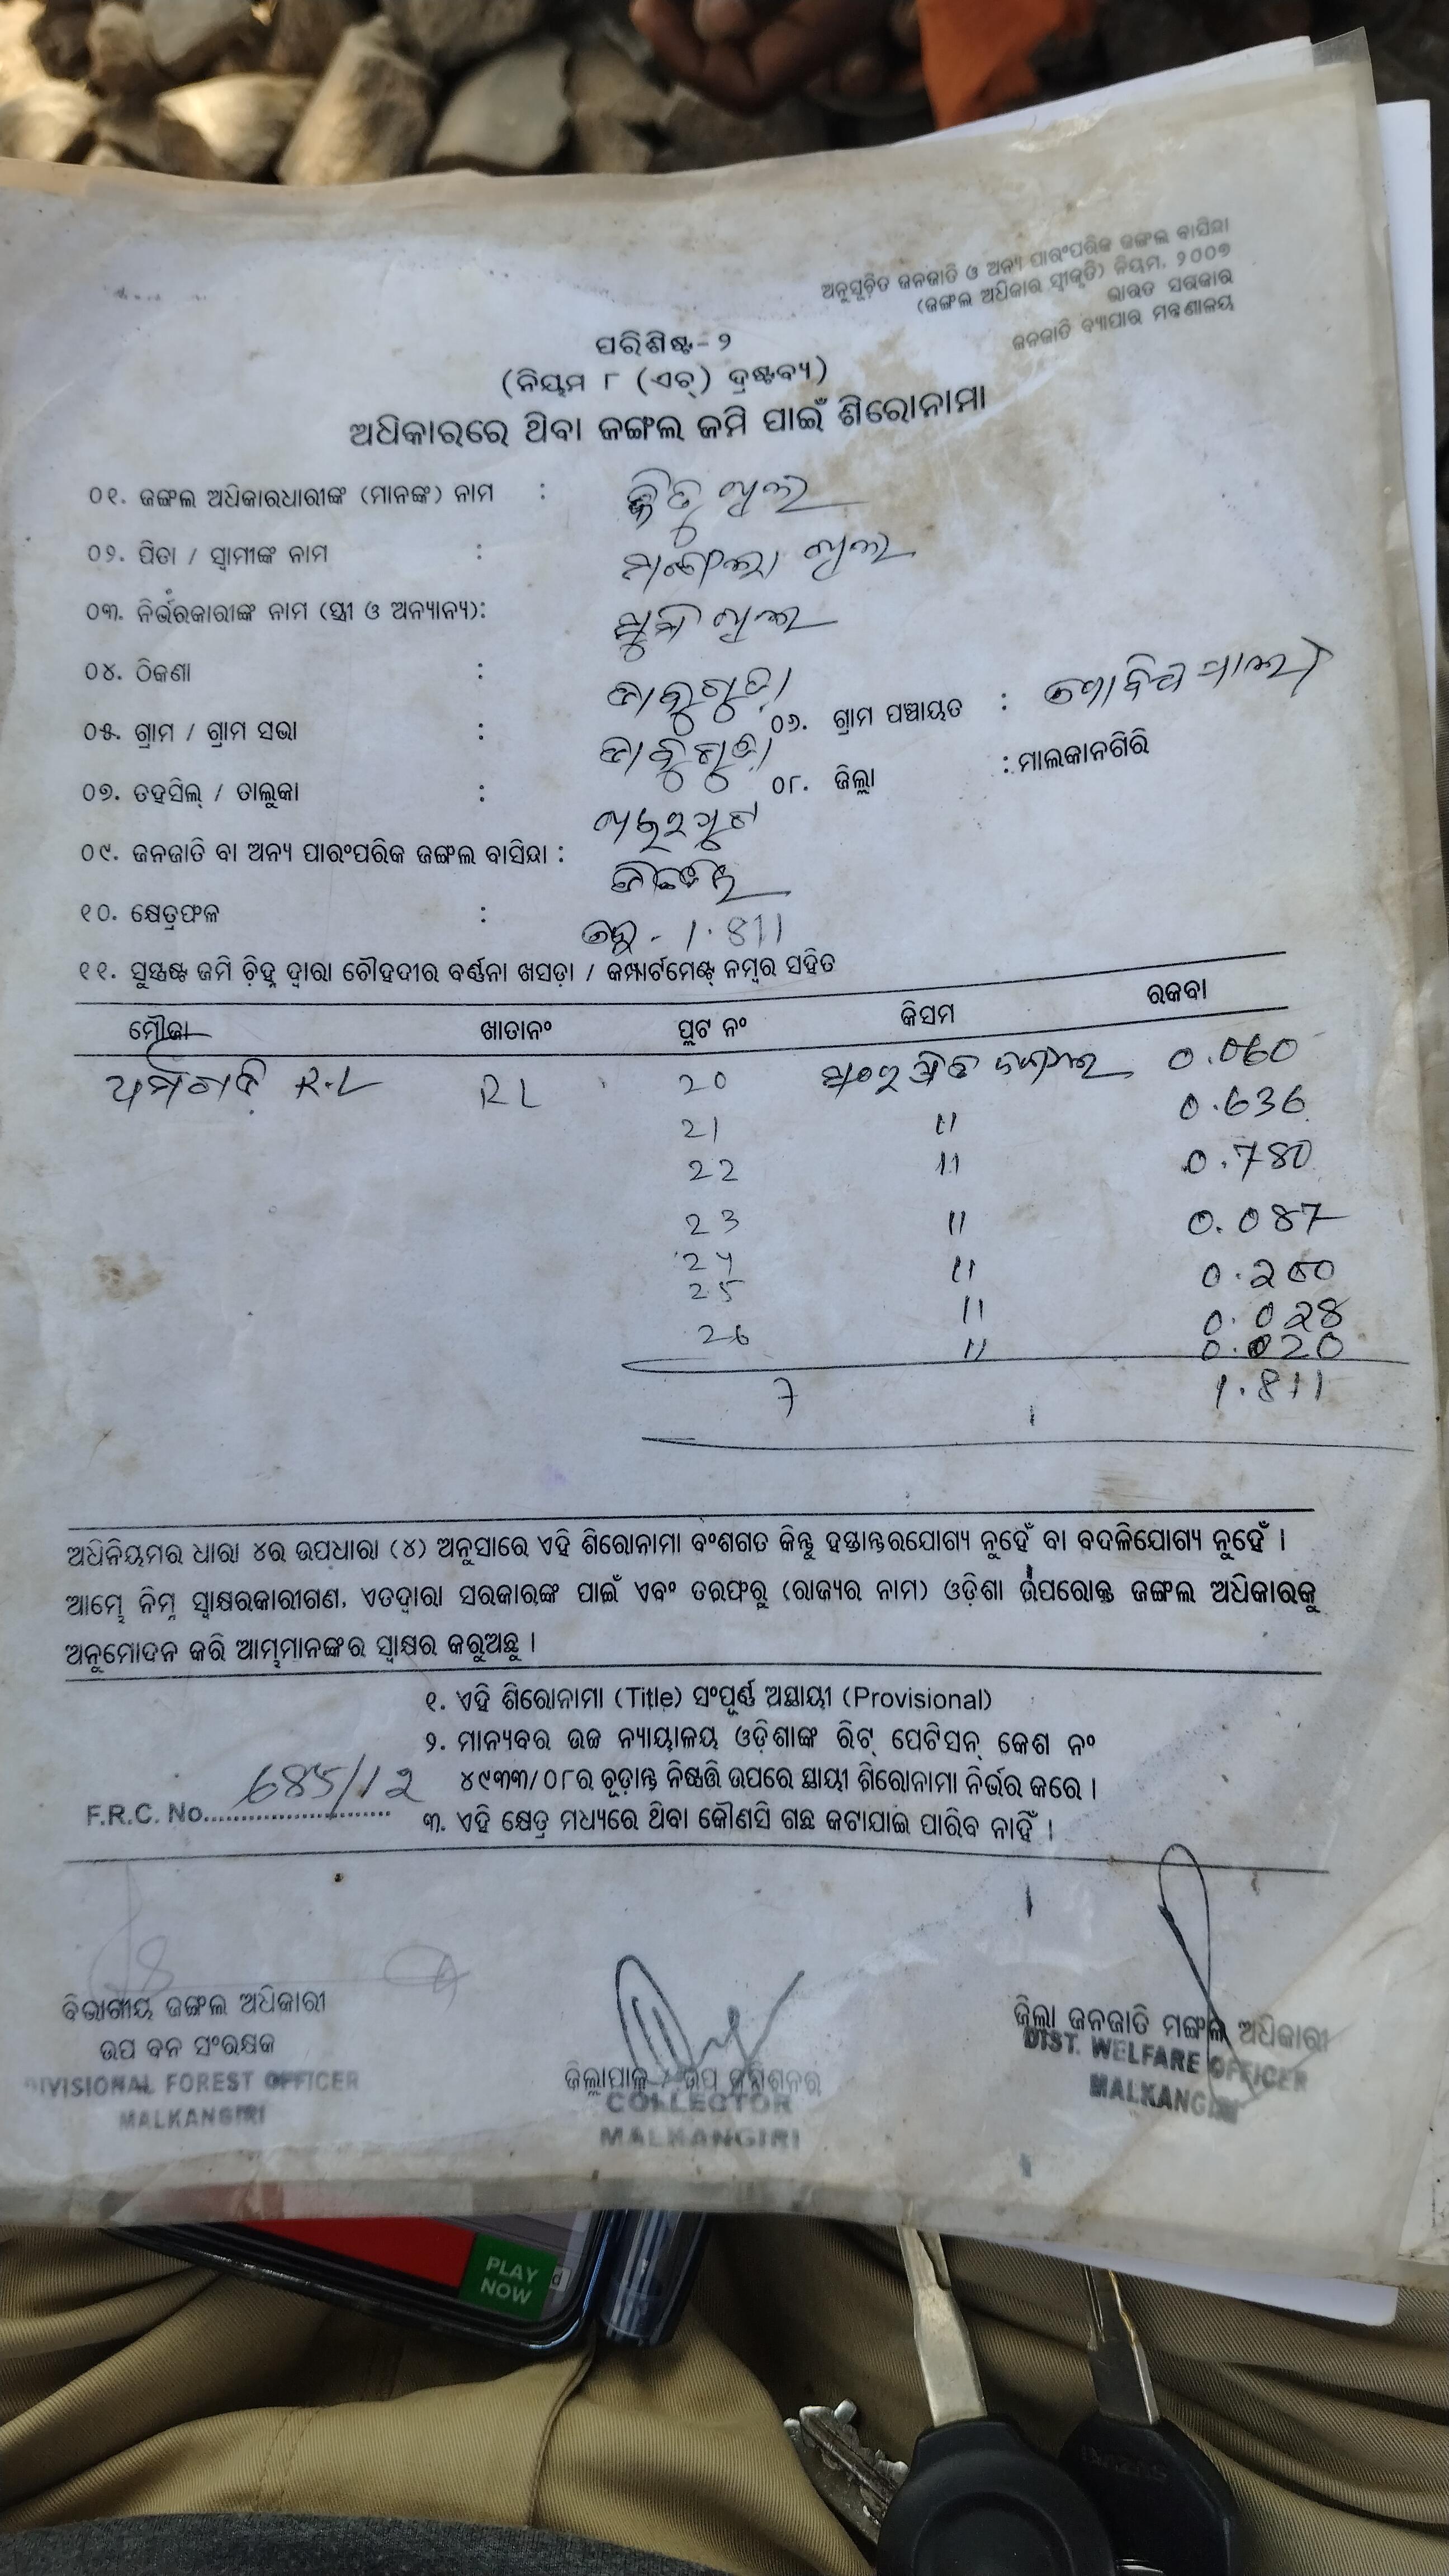 ଅନୁସୂଚିତ ଜନଜାତି ଓ ଅନ୍ୟ ପାରଂପରିକ ଜଙ୍ଗଲ ବାସିନ୍ଦା
(ଜଙ୍ଗଲ ଅଧିକାର ସ୍ୱୀକୃତି) ନିୟମ, ୨୦୦୭
ଭାରତ ସରକାର
ଜନଜାତି ବ୍ୟାପାର ମନ୍ତ୍ରଣାଳୟ
ପରିଶିଷ୍ଟ-୨
(ନିୟମ ୮ (ଏଚ୍) ଦ୍ରଷ୍ଟବ୍ୟ)
ଅଧିକାରରେ ଥିବା ଜଙ୍ଗଲ ଜମି ପାଇଁ ଶିରୋନାମା
୦୧. ଜଙ୍ଗଲ ଅଧିକାରଧାରୀଙ୍କ (ମାନଙ୍କ) ନାମ :
୦୨. ପିତା / ସ୍ୱାମୀଙ୍କ ନାମ :
୦୩. ନିର୍ଭରକାରୀଙ୍କ ନାମ (ସ୍ତ୍ରୀ ଓ ଅନ୍ୟାନ୍ୟ):
୦୪. ଠିକଣା :
୦୫. ଗ୍ରାମ / ଗ୍ରାମ ସଭା : ୦୬. ଗ୍ରାମ ପଞ୍ଚାୟତ :
୦୭. ତହସିଲ୍ / ତାଲୁକା : ୦୮. ଜିଲ୍ଲା : ମାଲକାନଗିରି
୦୯. ଜନଜାତି ବା ଅନ୍ୟ ପାରଂପରିକ ଜଙ୍ଗଲ ବାସିନ୍ଦା :
୧୦. କ୍ଷେତ୍ରଫଳ : 1.811
୧୧. ସୁସ୍ପଷ୍ଟ ଜମି ଚିହ୍ନ ଦ୍ୱାରା ଚୌହଦୀର ବର୍ଣ୍ଣନା ଖସଡ଼ା / କମ୍ପାର୍ଟମେଣ୍ଟ୍ ନମ୍ବର ସହିତ
ମୌଜା ଖାତାନଂ ପ୍ଲଟ ନଂ କିସମ ରକବା
R.L RL 20 0.060
21 " 0.636
22 " 0.780
23 " 0.087
24 " 0.200
25 " 0.028
26 " 0.020
7 1.811
ଅଧିନିୟମର ଧାରା ୪ର ଉପଧାରା (୪) ଅନୁସାରେ ଏହି ଶିରୋନାମା ବଂଶଗତ କିନ୍ତୁ ହସ୍ତାନ୍ତରଯୋଗ୍ୟ ନୁହେଁ ବା ବଦଳିଯୋଗ୍ୟ ନୁହେଁ ।
ଆମ୍ଭେ ନିମ୍ନ ସ୍ୱାକ୍ଷରକାରୀଗଣ, ଏତଦ୍ୱାରା ସରକାରଙ୍କ ପାଇଁ ଏବଂ ତରଫରୁ (ରାଜ୍ୟର ନାମ) ଓଡ଼ିଶା ଉପରୋକ୍ତ ଜଙ୍ଗଲ ଅଧିକାରକୁ
ଅନୁମୋଦନ କରି ଆମ୍ଭମାନଙ୍କର ସ୍ୱାକ୍ଷର କରୁଅଛୁ ।
୧. ଏହି ଶିରୋନାମା (Title) ସଂପୂର୍ଣ୍ଣ ଅସ୍ଥାୟୀ (Provisional)
୨. ମାନ୍ୟବର ଉଚ୍ଚ ନ୍ୟାୟାଳୟ ଓଡ଼ିଶାଙ୍କ ରିଟ୍ ପେଟିସନ୍ କେଶ ନଂ
୪୯୩୩/୦୮ର ଚୂଡ଼ାନ୍ତ ନିଷ୍ପତ୍ତି ଉପରେ ସ୍ଥାୟୀ ଶିରୋନାମା ନିର୍ଭର କରେ ।
F.R.C. No. 685/12
୩. ଏହି କ୍ଷେତ୍ର ମଧ୍ୟରେ ଥିବା କୌଣସି ଗଛ କଟାଯାଇ ପାରିବ ନାହିଁ ।
ବିଭାଗୀୟ ଜଙ୍ଗଲ ଅଧିକାରୀ
ଉପ ବନ ସଂରକ୍ଷକ
DIVISIONAL FOREST OFFICER
MALKANGIRI
ଜିଲ୍ଲାପାଳ / ଉପ କମିଶନର
COLLECTOR
MALKANGIRI
ଜିଲ୍ଲା ଜନଜାତି ମଙ୍ଗଳ ଅଧିକାରୀ
DIST. WELFARE OFFICER
MALKANGIRI
PLAY
NOW